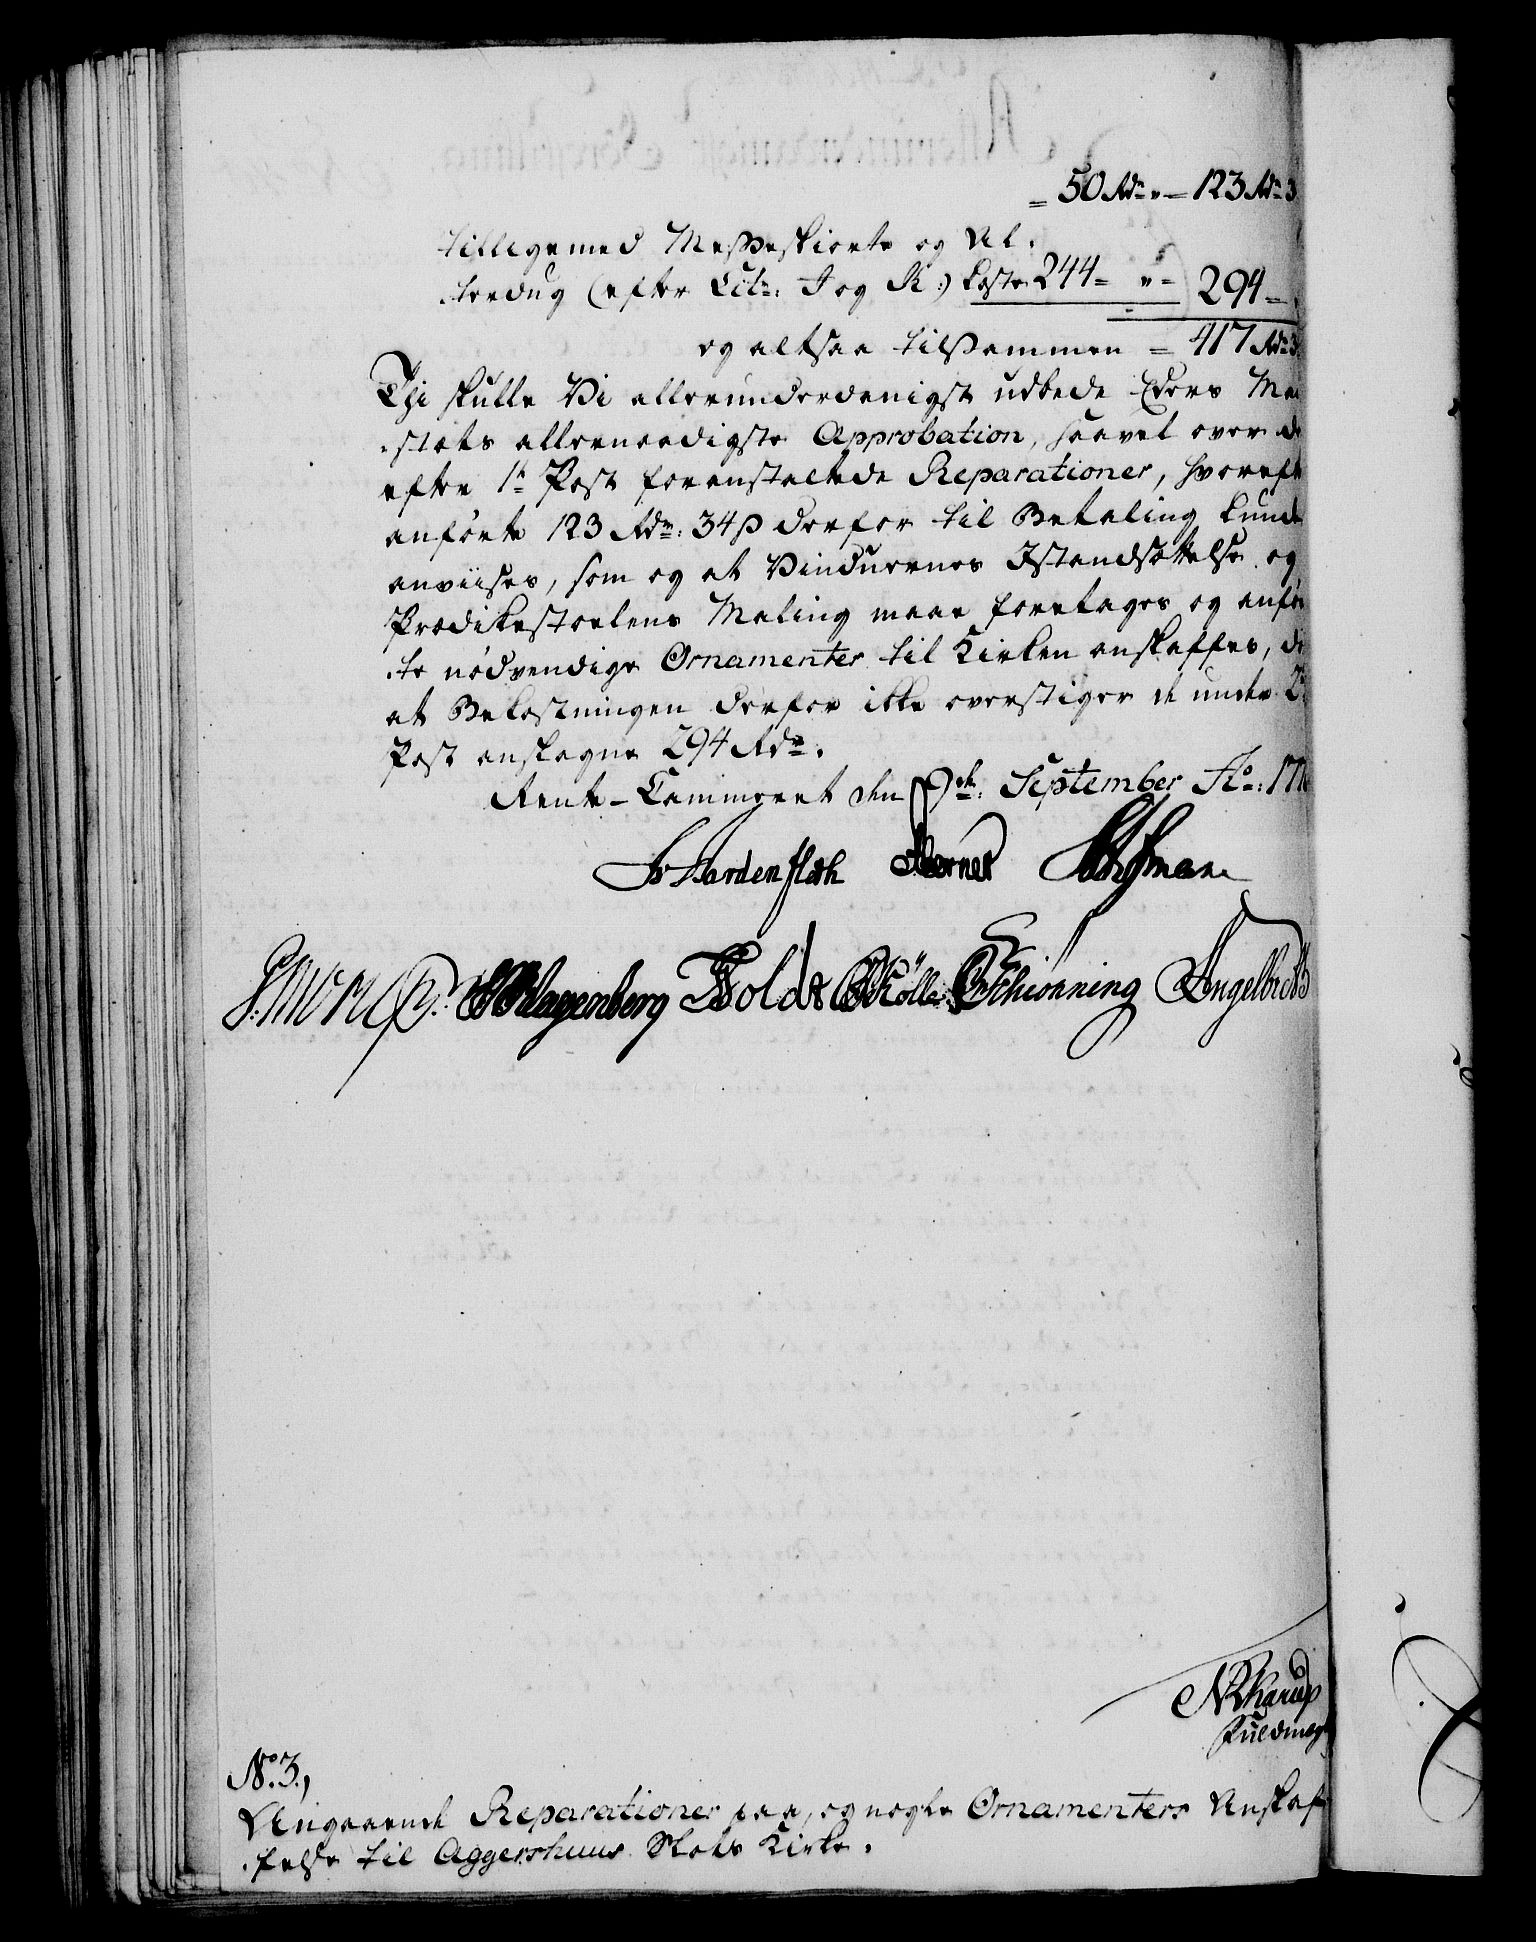 = 50 Rdr " — 123 Rdr 3
tilligemed Messeskiorte og Al-
terdug (efter Litr: J og K:) koste 244 = " = 294 =
og altsaa tilsammen = 417 Rdr 3
Thi skulle Vi allerunderdanigst udbede Eders Ma
stæts allernaadigste Approbation, saavel over de
efter 1te Post foranstaltede Reparationer, hvoreft
anførte 123 Rdr: 34 ß derfor til Betaling kunde
anviises, som og at Vinduernes Istandsættelse og
Prædikestoelens Maling maae foretages og anfør
te nödvendige Ornamenter til Kirken anskaffes, da
at Bekostningen derfor ikke overstiger de under 2
Post anslagne 294 Rdr.
Rente-Cammeret den 9de September Ao: 17
Hardenfleth Horner
Klagenborg Holdt Kölle Schiönning Engelbreth
Skarup
Fuldmæg
No. 3.,
Angaaende Reparationer paa, og nogle Ornamenters Anskaf
felse til Aggershuus Slots Kirke.